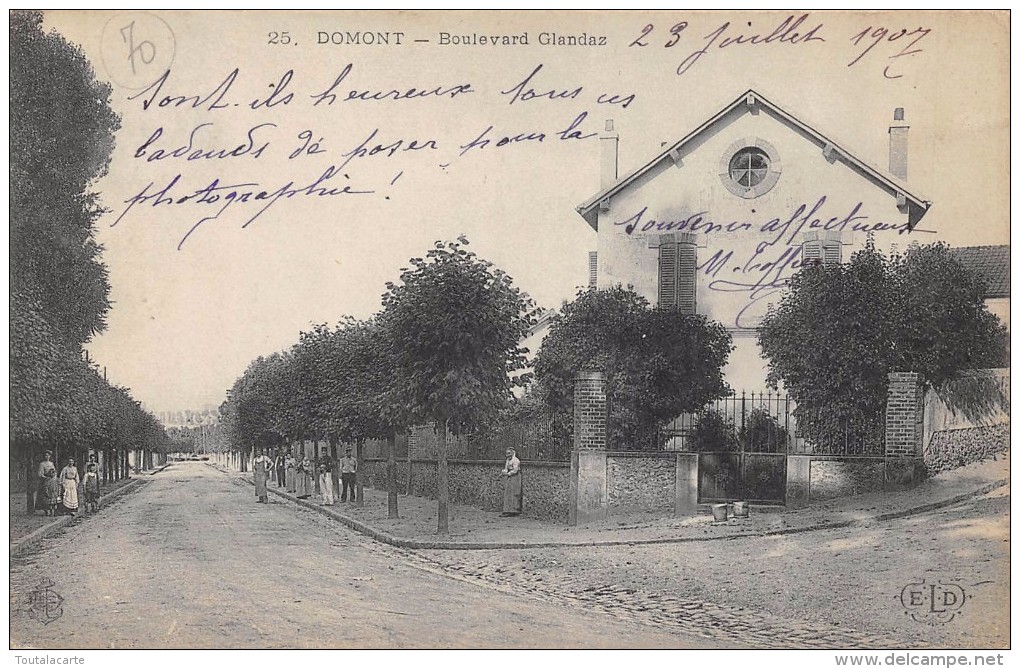 70
25. DOMONT — Boulevard Glandaz
23 juillet 1907
Sont-ils heureux tous ces
badauds de poser pour la
photographie !
Souvenir affectueux
M.
ELD
Toutalacarte
http://www.delcampe.net